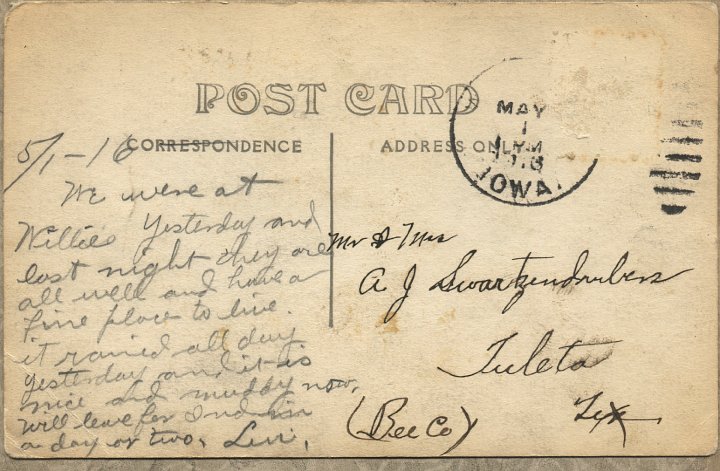 POST CARD
CORRESPONDENCE
ADDRESS ONLY
MAY
1
IOWA.
5/1-16
We were at
Willies Yesterday and
last night they are
all well and have a
fine place to live.
it rained all day
yesterday and it is
nice and muddy now.
will leave for Ind in
a day or two. Levi.
Mr & Mrs
A J Swartzendruber
Tuleta
(Bee Co) Tex